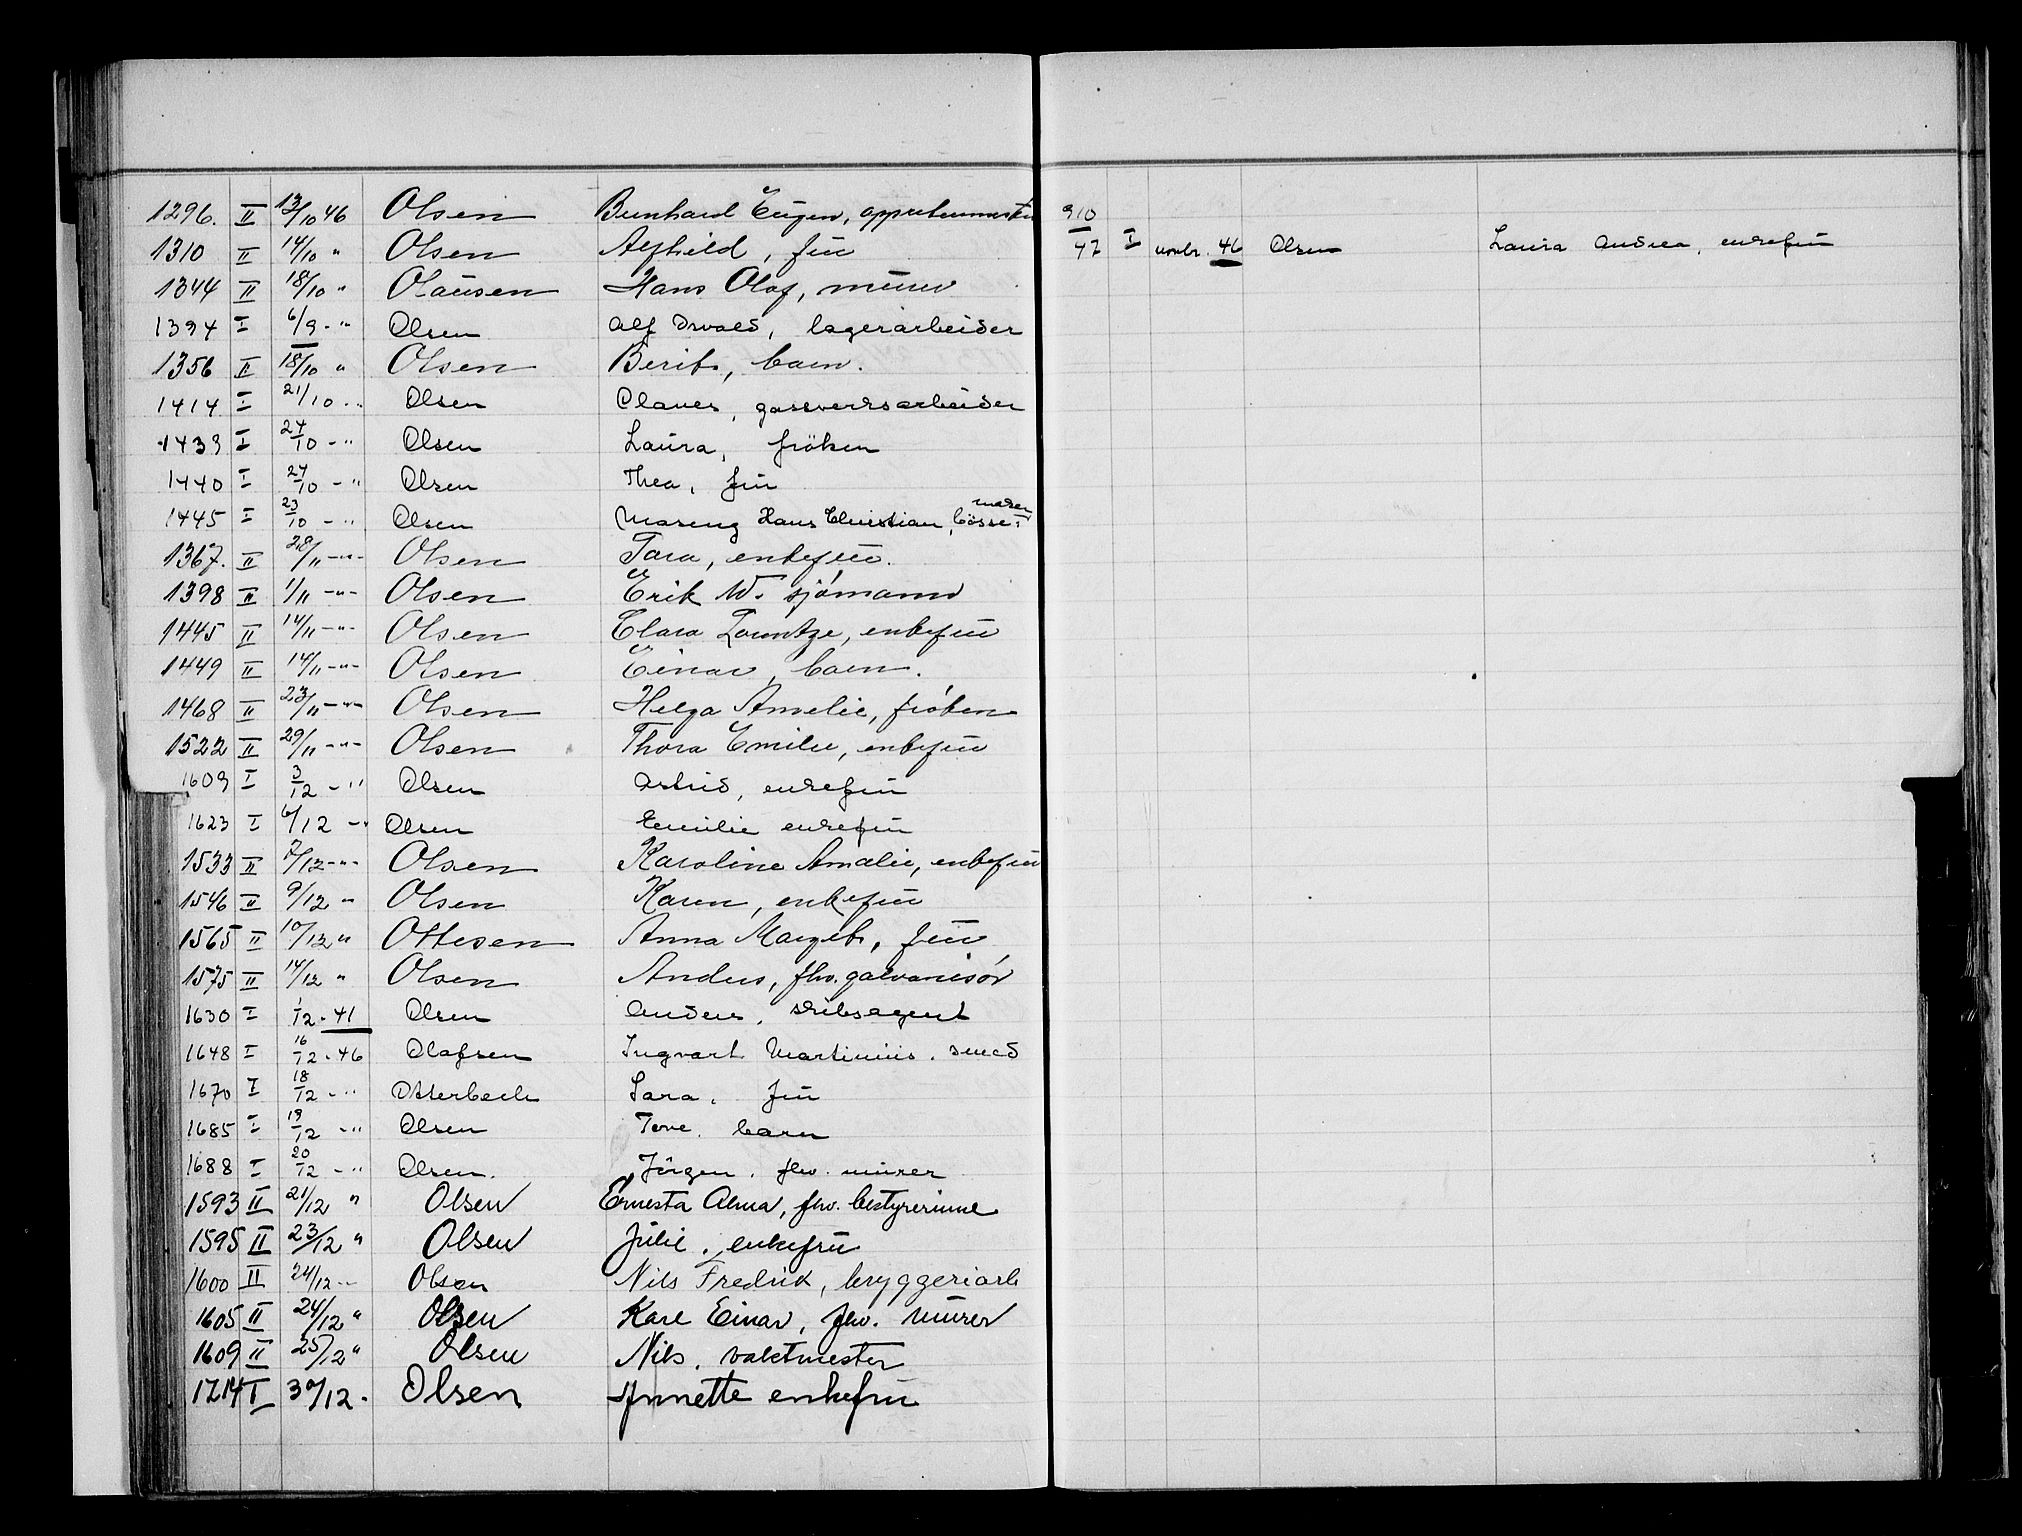 1296. II 13/10 46 Olsen Bernhard Eugen, oppsetermester
1310 II 14/10 " Olsen Alfhild, frü
1344 II 18/10 " Olaüsen Hans Olaf, mürer
1394 I 6/9 - " Olsen Alf Osvald, lagerarbeider
1356 II 18/10 " Olsen Berit, barn.
1414 I 21/10 - " Olsen Claves, gassverksarbeider
1433 I 24/10 - " Olsen Laüra, fröken
1440 I 24/10 - " Olsen Thea, frü
1445 I 23/10 - " Olsen Hans Christian, bösse-maker
1367. II 28/11 - " - Olsen Tara, enkefrü.
1398 II 1/11 - " - Olsen Erik W. sjömann
1445 II 14/11 - " - Olsen Clara Lorentze, enkefrü
1449 II 14/11 - " - Olsen Einar, barn.
1468 II 23/11 - " - Olsen Helga Amelie, fröken
1522 II 29/11 - " - Olsen Thora Emilie, enkefrü
1609 I 3/12 - " Olsen Astrid, enkefrü
1623 I 6/12 - " Olsen Emilie enkefrü
1533 II 7/12 - " - Olsen Karoline Amalie, enkefrü
1546 II 9/12 " Olsen Karen, enkefrü
1565 II 10/12 " Ottesen Anna Margit, frü
1575 II 14/12 " Olsen Anders, fhv. galvanisör
1630 I 1/12 - 41 Olsen Anders, skibsagent
1648 I 16/12 - 46 Olafsen Ingvart Martiniüs. smed
1670 I 18/12 - " Otterbech Sara, frü
1685 I 19/12 - " Olsen Tove, barn
1688 I 20/12 - " Olsen. Jörgen, fhv. mürer
1593 II 21/12 " Olsen Ernesta Alma, fhv. bestyrerinne
1595 II 23/12 " Olsen Jülie, enkefrü
1600 II 24/12 - Olsen Nils Fredrik, bryggeriarb
1605 II 24/12 " Olsen Kare Einar, fhv. mürer
1609 II 25/12 " Olsen Nils, vaktmester
1714 I 30/12 - Olsen Annette enkefrü
910/47 I novbr. 46 Olsen Laüra Andrea, enkefrü